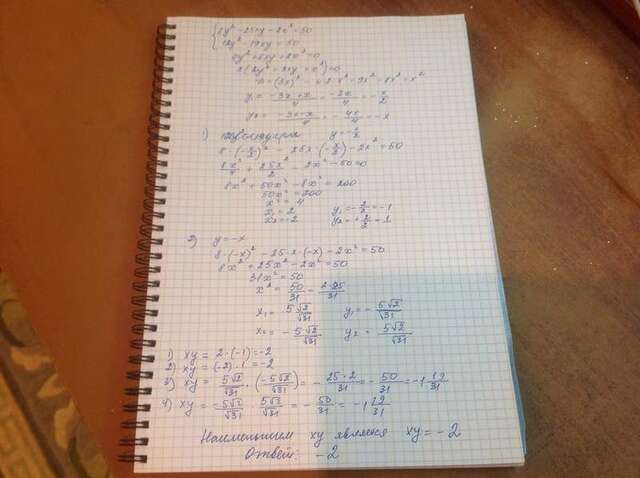 8y² - 25xy - 2x² = 50
12y² - 19xy = 50
4y² + 6xy + 2x² = 0
2(2y² + 3xy + x²) = 0
D = (3x)² - 4·2·x² = 9x² - 8x² = x²
y₁ = (-3x+x)/4 = -2x/4 = -x/2
y₂ = (-3x-x)/4 = -4x/4 = -x
1) y = -x/2
8·(-x/2)² - 25x·(-x/2) - 2x² = 50
8x²/4 + 25x²/2 - 2x² - 50 = 0
8x² + 50x² - 8x² = 200
50x² = 200
x² = 4
x₁ = 2 y₁ = -2/2 = -1
x₂ = -2 y₂ = +2/2 = 1
2) y = -x
8·(-x)² - 25·x·(-x) - 2x² = 50
8x² + 25x² - 2x² = 50
31x² = 50
x² = 50/31 = 2·25/31
x₁ = 5√2/√31 y₁ = -5√2/√31
x₂ = -5√2/√31 y₂ = 5√2/√31
1) xy = 2·(-1) = -2
2) xy = (-2)·1 = -2
3) xy = 5√2/√31·(-5√2/√31) = -25·2/31 = -50/31 = -1 19/31
4) xy = -5√2/√31 5√2/√31 = -50/31 = -1 19/31
Наименьшим xy является xy = -2
Ответ: -2